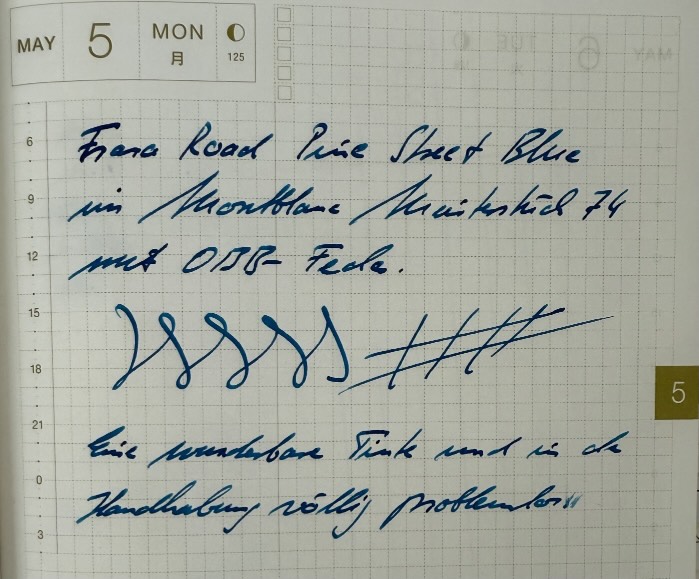 MAY 5 MON
月 125
6
Frara Road Pine Street Blue
9
im Montblanc Meisterstück 74
12
mit OBB- Feder.
15
18
5
21
Eine wunderbare Tinte und in der
0
Handhabung völlig problemlos
3